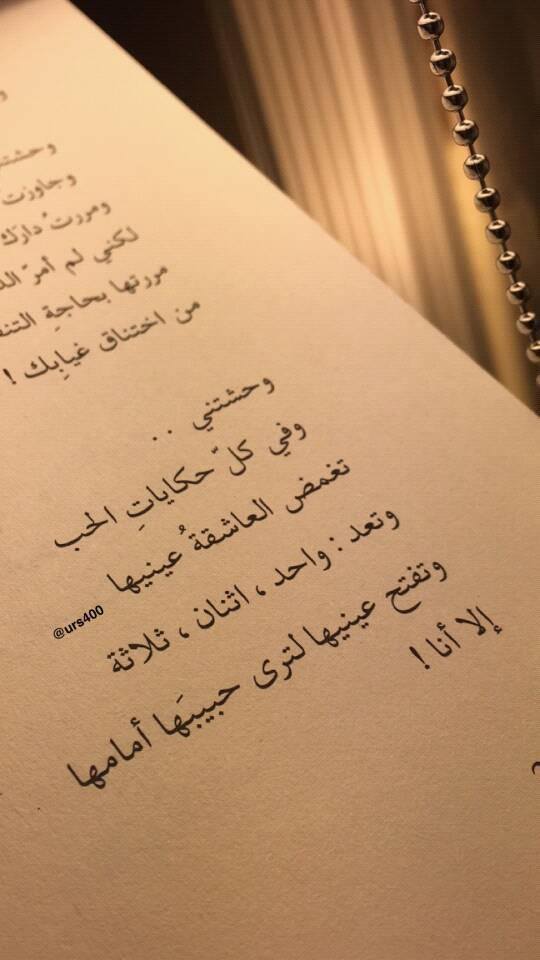 وحشتني
وجاوزت
ومررتُ دارَك
لكني لم أمرّ
مررتها بحاجةِ
من اختناق غيابِك !
وحشتني ..
وفي كلّ حكاياتِ الحب
تغمض العاشقةُ عينيها
وتعد : واحد ، اثنان ، ثلاثة
وتفتح عينيها لترى حبيبَها أمامها
إلا أنا !
@urs400